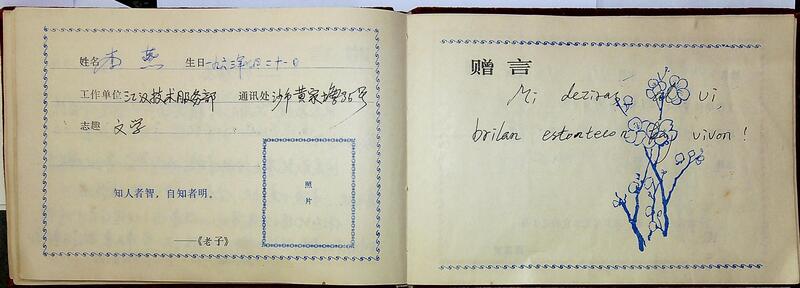 姓名 李燕 生日 一九六三年 月二十一日
工作单位 江汉技术服务部 通讯处 沙市黄家塘35号
志趣 文学
照片
知人者智，自知者明。
——《老子》
赠言
Mi deziras al vi,
brilan estontecon kaj vivon!